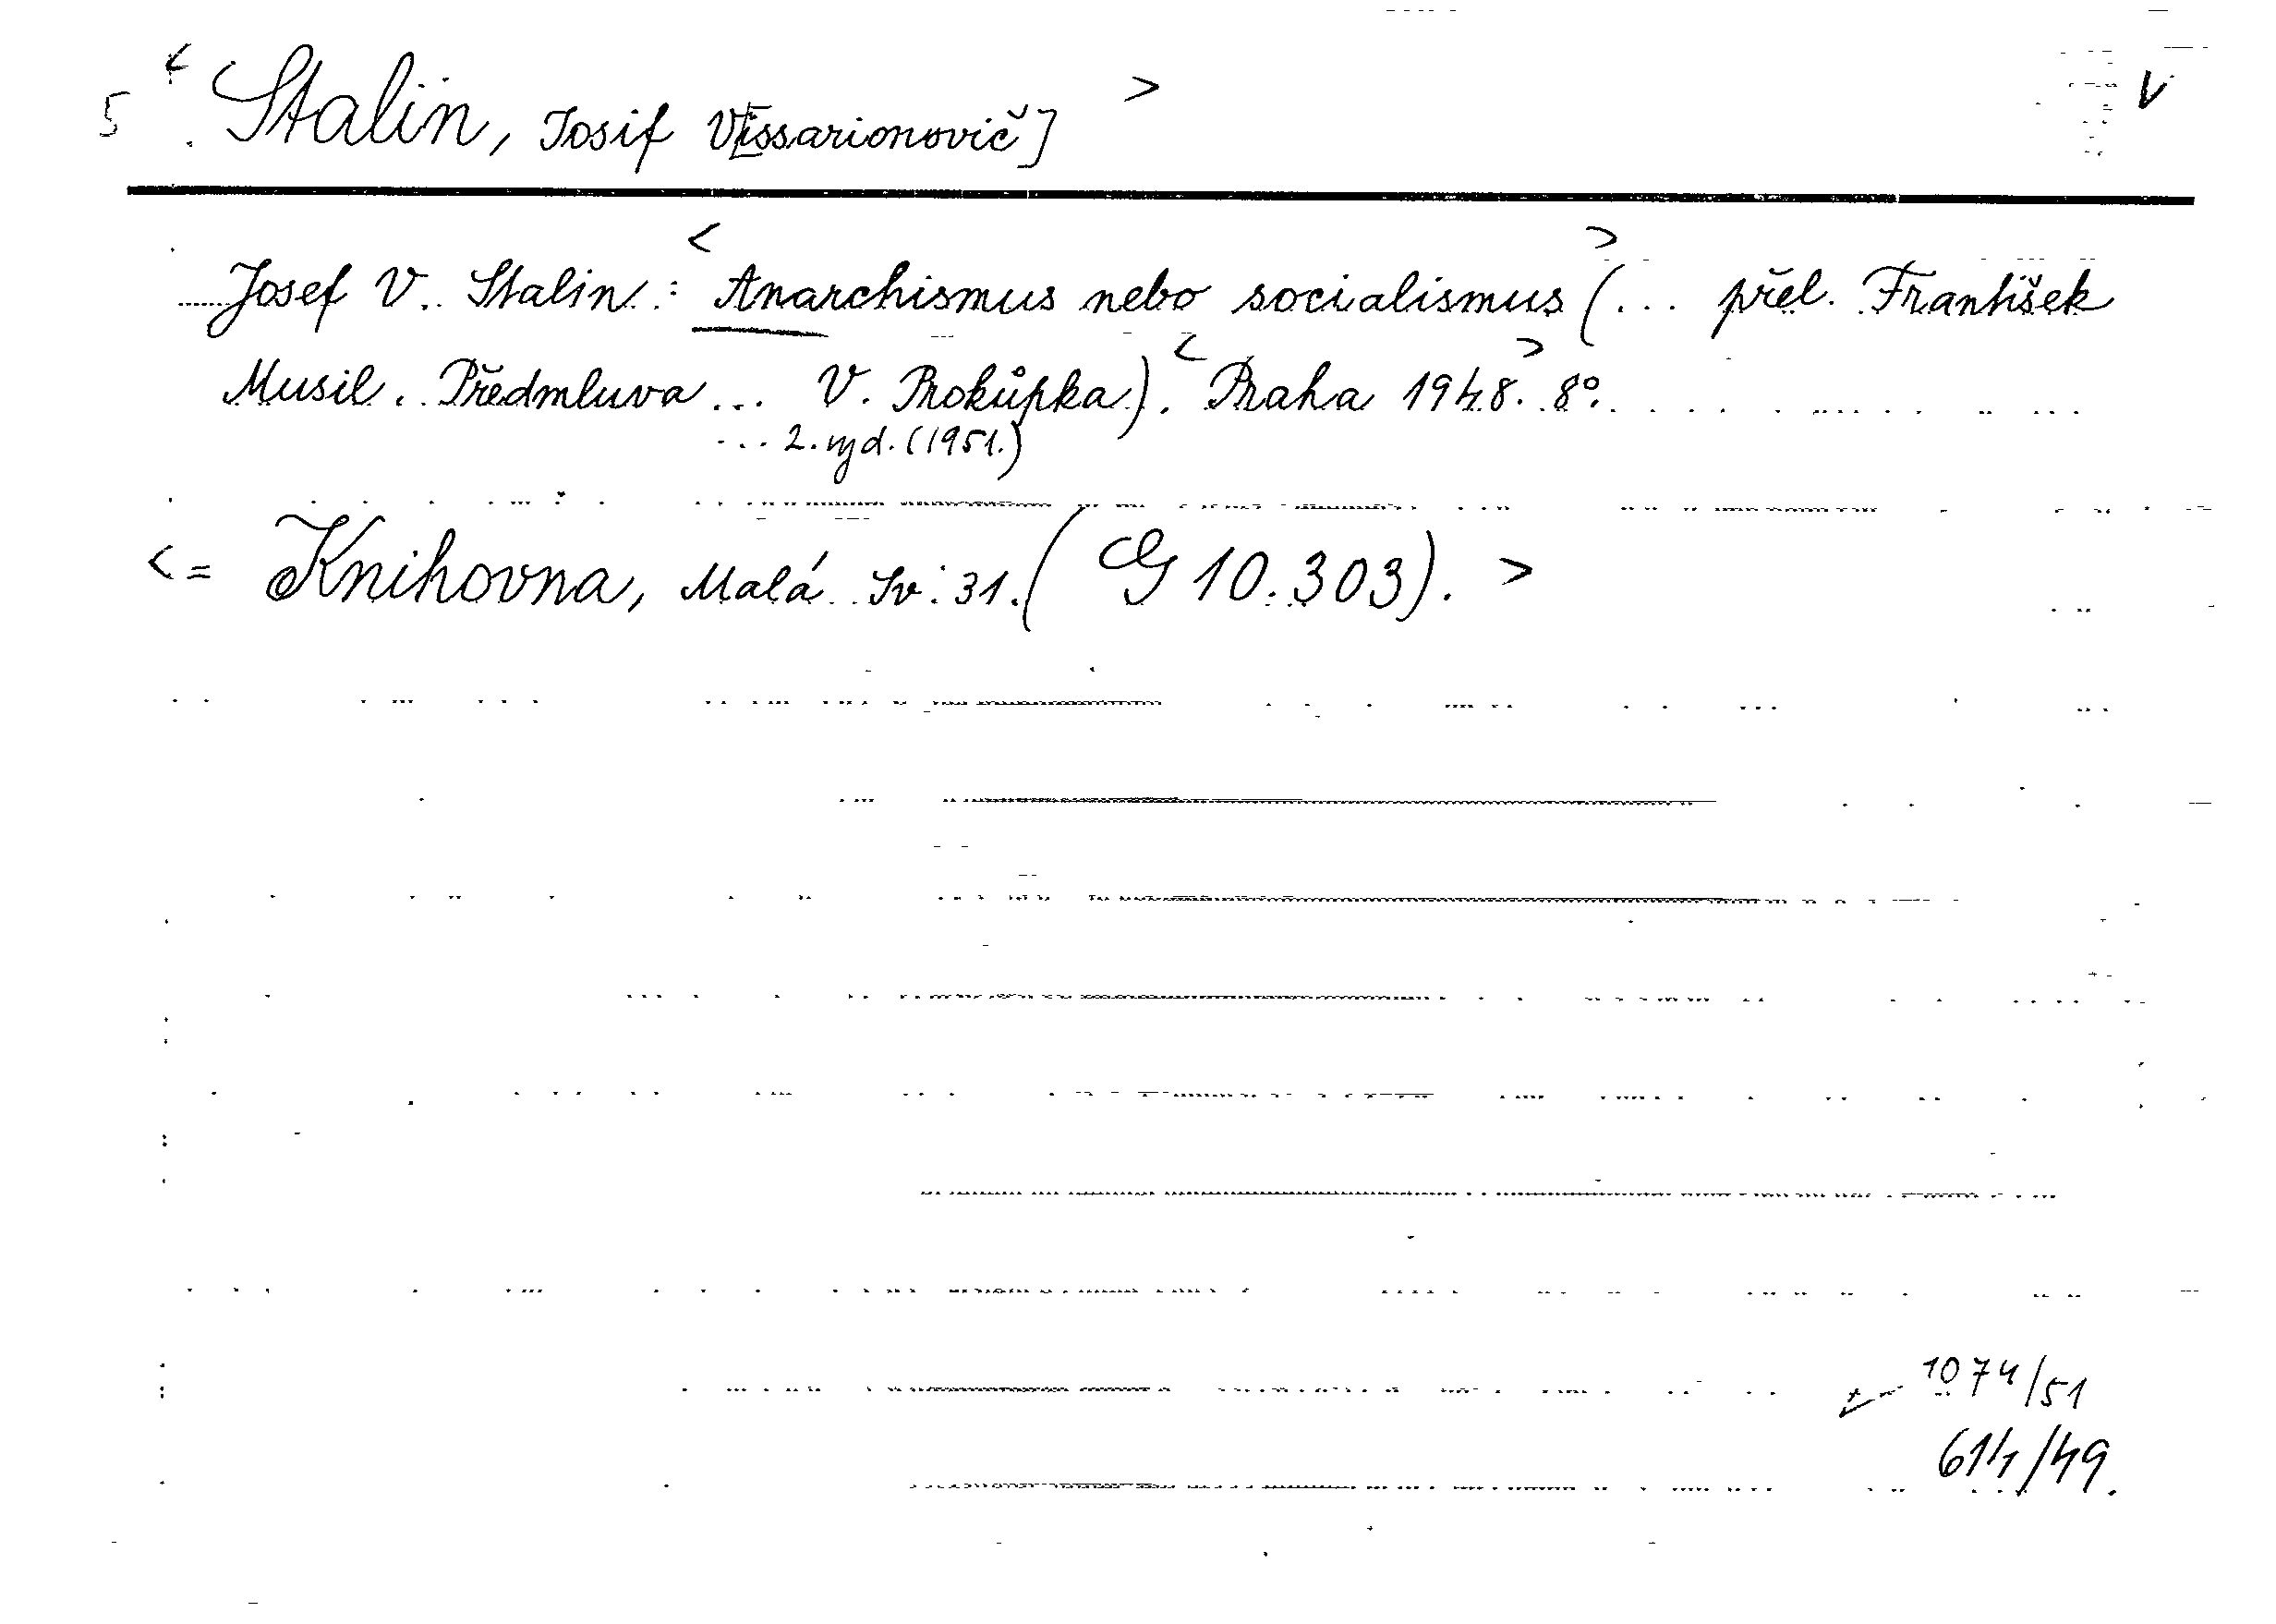 5 < Stalin, Josif V[issarionovič] > V
Josef V. Stalin: <Anarchismus nebo socialismus> (... přel. František
Musil. Předmluva ... V. Prokůpka). <Praha 1948.> 8°.
... 2. vyd. (1951.)
<= Knihovna, Malá. Sv. 31. (G 10.303). >
1074/51
614/49.